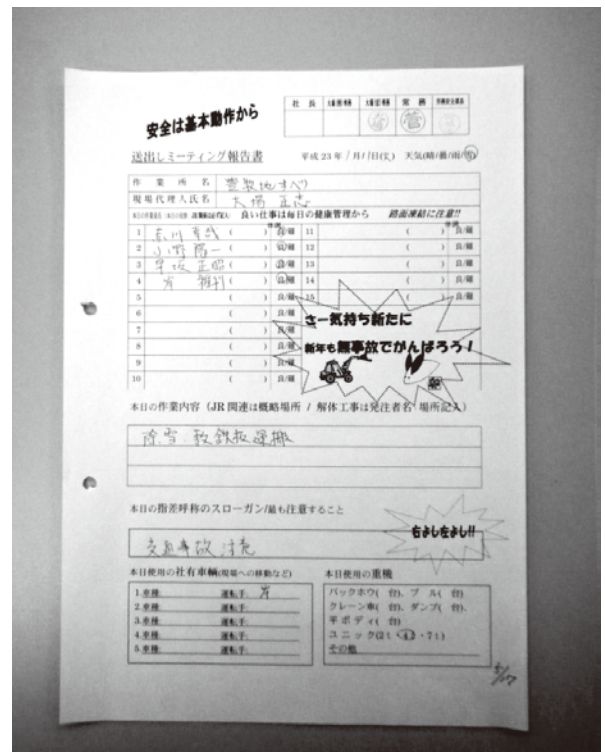 安全は基本動作から
社長 常務
送出しミーティング報告書 平成23年1月11日(火) 天気(晴/曇/雨/雪)
作業所名 豊牧地すべり
現場代理人氏名 大場 正志
良い仕事は毎日の健康管理から 路面凍結に注意!!
1 ( ) 良/確 11 ( ) 良/確
2 小野 陽一 ( ) 良/確 12 ( ) 良/確
3 早坂 正昭 ( ) 良/確 13 ( ) 良/確
4 岸 雅利 ( ) 良/確 14 ( ) 良/確
5 ( ) 良/確 15 ( ) 良/確
6 ( ) 良/確
7 ( ) 良/確
8 ( ) 良/確
9 ( ) 良/確
10 ( ) 良/確
さー気持ち新たに
新年も無事故でがんばろう!
本日の作業内容 (JR関連は概略場所 / 解体工事は発注者名・場所記入)
除雪・敷鉄板運搬
本日の指差呼称のスローガン/最も注意すること
右よし左よし!!
交通事故注意
本日使用の社有車輌(現場への移動など)
1.車種: 運転手: 岸
2.車種: 運転手:
3.車種: 運転手:
4.車種: 運転手:
5.車種: 運転手:
本日使用の重機
バックホウ( 台)、ブル( 台)
クレーン車( 台)、ダンプ( 台)、
平ボディ( 台)
ユニック(2t・4t・7t)
その他